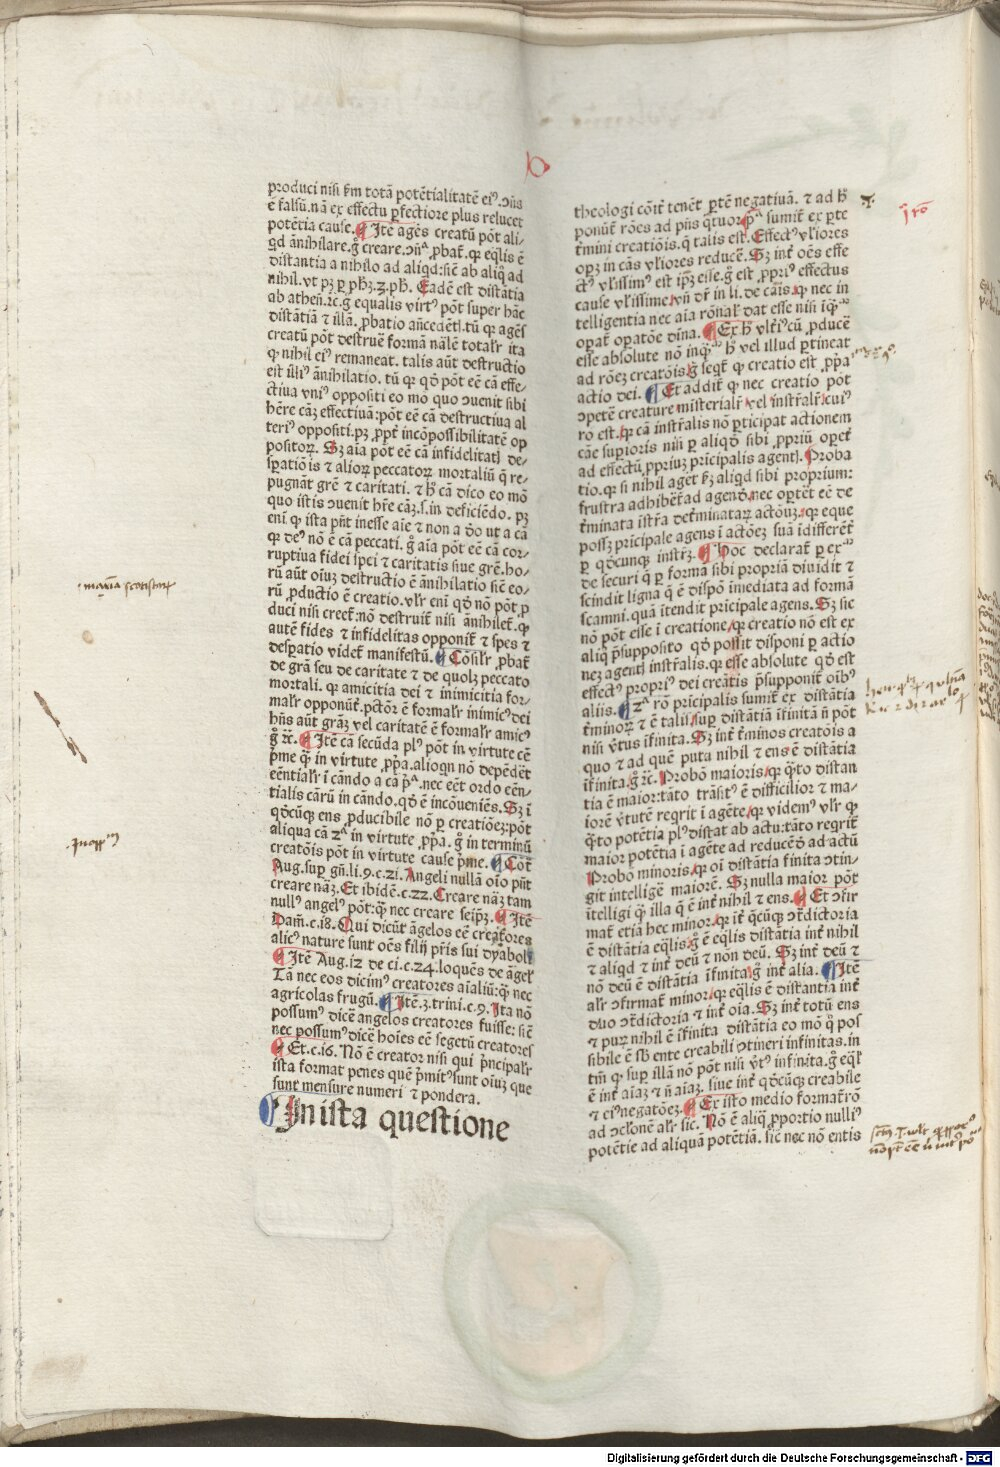 produci nisi ẜm totã potẽtialitatẽ ei⁹. ↄñs
ẽ falsũ. nã ex effectu ꝑfectiore plus relucet
potẽtia cause. Itẽ agẽs creatũ põt ali-
qd ãnihilare. g̊ creare. ꝓbat̃. qꝛ eq̃lis ẽ
distantia a nihilo ad aliqd: sic̃ ab aliq̃ ad
nihil. vt pꝫ ꝑ ph̃ꝫ. 3. ph̃. Eadẽ est distãtia
ab athen̄. ꝛc̃. g̊ equalis virt⁹ põt super hãc
distãtiã ⁊ illã. ꝓbatio añcedẽt. tũ qꝛ agẽs
creatũ põt destruẽ formã nãlẽ total̃r ita
ꝙ nihil ei⁹ remaneat. talis aũt destructio
est illi⁹ ãnihilatio. tũ qꝛ qd̃ põt eẽ cã effe-
ctiua vni⁹ oppositi eo mõ quo ↄuenit sibi
hẽre cãꝫ effectiuã: põt eẽ cã destructiua al
teri⁹ oppositi. pꝫ ꝓpt̃ incõpossibilitatẽ op
positoꝝ. Sꝫ aĩa põt eẽ cã infidelitat de-
sꝑatiõis ⁊ alioꝝ peccatoꝝ mortaliũ q̃ re-
pugnãt grẽ ⁊ caritati. ⁊ h̃ cã dico eo mõ
quo istis ↄuenit hr̃e cãꝫ. s. in deficiẽdo. pꝫ
eni ꝙ ista pñt inesse aĩe ⁊ non a deo ut a cã
qꝛ de⁹ nõ ẽ cã peccati. g̊ aĩa põt eẽ cã cor-
ruptiua fidei spei ⁊ caritatis siue grẽ. ho-
rũ aũt oĩuꝫ destructio ẽ ãnihilatio sic̃ eo-
rũ ꝓductio ẽ creatio. vl̃r eni qd̃ nõ põt ꝓ
duci nisi creet̃: nõ destruit̃ nisi ãnihilet̃. qꝛ
autẽ fides ⁊ infidelitas opponit̃ ⁊ spes ⁊
desꝑatio videt̃ manifestũ. Cõsil̃r ꝓbat̃
de grã seu de caritate ⁊ de quolꝫ peccato
mortali. qꝛ amicitia dei ⁊ inimicitia for-
mal̃r opponũt̃. pctõr ẽ formal̃r inimic⁹ dei
hñs aũt grãꝫ vel caritatẽ ẽ formal̃r amic⁹
g̊ ꝛc̃. Itẽ cã secũda pl⁹ põt in virtute cẽ
p̃me q̃ in virtute ꝓp̃a. alioqn nõ depẽdẽt
eẽntial̃r i cãndo a cã p̃ª. nec eẽt ordo eẽn-
tialis cãrũ in cãndo. qd̃ ẽ incõueniẽs. Sꝫ i
qd̃cũqꝫ ens ꝓducibile nõ ꝑ creatiõeꝫ: põt
aliqua cã 2ª in virtute ꝓp̃a. g̊ in terminũ
creatõis põt in virtute cause p̃me. Cõt̃
Aug. sup gñ. li. 9. c. 21. Angeli nullã oĩo pñt
creare nãꝫ. Et ibidẽ. c. 22. Creare nãꝫ tam
null⁹ angel⁹ põt: q̃ nec creare seip̃ꝫ. Itẽ
Dam̃. c. 18. Qui dicũt ãgelos eẽ creatores
alic⁹ nature sunt oẽs filij p̃ris sui dyaboli
Itẽ Aug. 12 de ci. c. 24. loquẽs de ãgel
Tã nec eos dicim⁹ creatores aĩaliũ: q̃ nec
agricolas frugũ. Itẽ. 3. trini. c. 9. Ita nõ
possum⁹ dicẽ angelos creatores fuisse: sic̃
nec possum⁹ dicẽ hoĩes eẽ segetũ creatores
Et. c. 16. Nõ ẽ creator nisi qui p̃ncipal̃r
ista format penes quẽ p̃mit⁹ sunt oĩuꝫ que
sunt mensure numeri ⁊ pondera.
In ista questione
theologi cõit̃ tenẽt ꝑtẽ negatiuã. ⁊ ad h̃
ponũt̃ rões ad pñs q̃tuor. pª sumit̃ ex ꝑte
t̃mini creatiõis. q̃ talis est. Effect⁹ vl̃iores
opꝫ in cãs vl̃iores reducẽ. Sꝫ int̃ oẽs effe
ct⁹ vl̃issim⁹ est ip̃ꝫ esse. g̊ est ꝓpri⁹ effectus
cause vl̃issime. vñ dr̃ in li. de cãis. ꝙ nec in
telligentia nec aĩa rõnal̃ dat esse nisi inq̃ᵐ
opat̃ opatõe diña. Ex h̃ vlt̃i⁹ cũ ꝓducẽ
esse absolute nõ inq̃ᵐ h̃ vel illud ꝑtineat
ad rõeꝫ creatõis. g̊ seqt̃ ꝙ creatio est ꝓp̃a
actio dei. Et addit̃ ꝙ nec creatio põt
ↄpetẽ creature misterial̃r vel instr̃al̃r. cui⁹
ro est. qꝛ cã instr̃alis nõ ꝑticipat actionem
cãe suꝑioris nisi ꝑ aliqd̃ sibi ꝓpriũ opet̃
ad effectũ ꝓpriuꝫ pricipalis agent. Proba
tio. qꝛ si nihil aget̃ ẜꝫ aliqd sibi proprium:
frustra adhibẽt̃ ad agend̃. nec opꝛtet eẽ de
t̃minata istr̃a det̃minataꝝ actõuꝫ. qꝛ eque
possꝫ pricipale agens i actõeꝫ suã idifferẽt̃
ꝑ qd̃cunqꝫ instr̃ꝫ. Hoc declarat̃ ꝑ exᵐ
de securi q̃ ꝑ formã sibi propriã diuidit ⁊
scindit ligna q̃ ẽ dispõ imediata ad formã
scamni. quã itendit pricipale agens. Sꝫ sic
nõ põt esse i creatione. qꝛ creatio nõ est ex
aliq̃ p̃supposito qd̃ possit disponi ꝑ actio
neꝫ agent instr̃alis. qꝛ esse absolute qd̃ est
effect⁹ propri⁹ dei creãtis p̃supponit̃ oĩb⁹
aliis. 2ª rõ pricipalis sumit̃ ex distãtia
t̃minoꝝ ⁊ ẽ talis. sup distãtiã ifinitã ñ põt
nisi v̓tus ifinita. Sꝫ int̃ t̃minos creatõis a
quo ⁊ ad quẽ puta nihil ⁊ ens ẽ distãtia
ifinita. g̊ ꝛc̃. Probõ maioris. qꝛ q̃to distan
tia ẽ maior: tãto trãsit⁹ ẽ difficilior ⁊ ma-
iorẽ v̓tutẽ regrit i agẽte. qꝛ videm⁹ vl̃r ꝙ
q̃to potẽtia pl⁹ distat ab actu: tãto regrit̃
maior potẽtia i agẽte ad reducẽd̃ ad actũ
Probõ minoris. qꝛ oi distãtia finita ↄtin-
git intelligẽ maiorẽ. Sꝫ nulla maior põt
itelligi q̃ illa q̃ ẽ int̃ nihil ⁊ ens. Et ↄfir
mat̃ etia hec minor. qꝛ it̃ q̃cũqꝫ ↄt̃dictoria
ẽ distãtia eq̃lis. g̊ ẽ eq̃lis distãtia int̃ nihil
⁊ aliqd ⁊ int̃ deũ ⁊ non deũ. Sꝫ int̃ deũ ⁊
nõ deũ ẽ distãtia ifinita. g̊ int̃ alia. Itẽ
al̃r ↄfirmat̃ minor. qꝛ eq̃lis ẽ distantia int̃
duo ↄt̃dictoria ⁊ int̃ oĩa. Sꝫ int̃ totũ ens
⁊ puꝝ nihil ẽ ifinita distãtia eo mõ q̃ pos
sibile ẽ sb̃ ente creabili ↄtineri infinitas. in
tm̃ ꝙ sup illã nõ põt nisi v̓t⁹ infinita. g̊ eq̃l
ẽ int̃ aĩaꝫ ⁊ ñ aĩaꝫ. siue int̃ qd̃cũqꝫ creabile
⁊ ei⁹ negatõeꝫ. Ex isto medio format̃ rõ
ad ↄcl̃onẽ al̃r sic. Nõ ẽ aliq̃ ꝓportio nulli⁹
potẽtie ad aliquã potẽtiã. sic̃ nec nõ entis
Digitalisierung gefördert durch die Deutsche Forschungsgemeinschaft - DFG